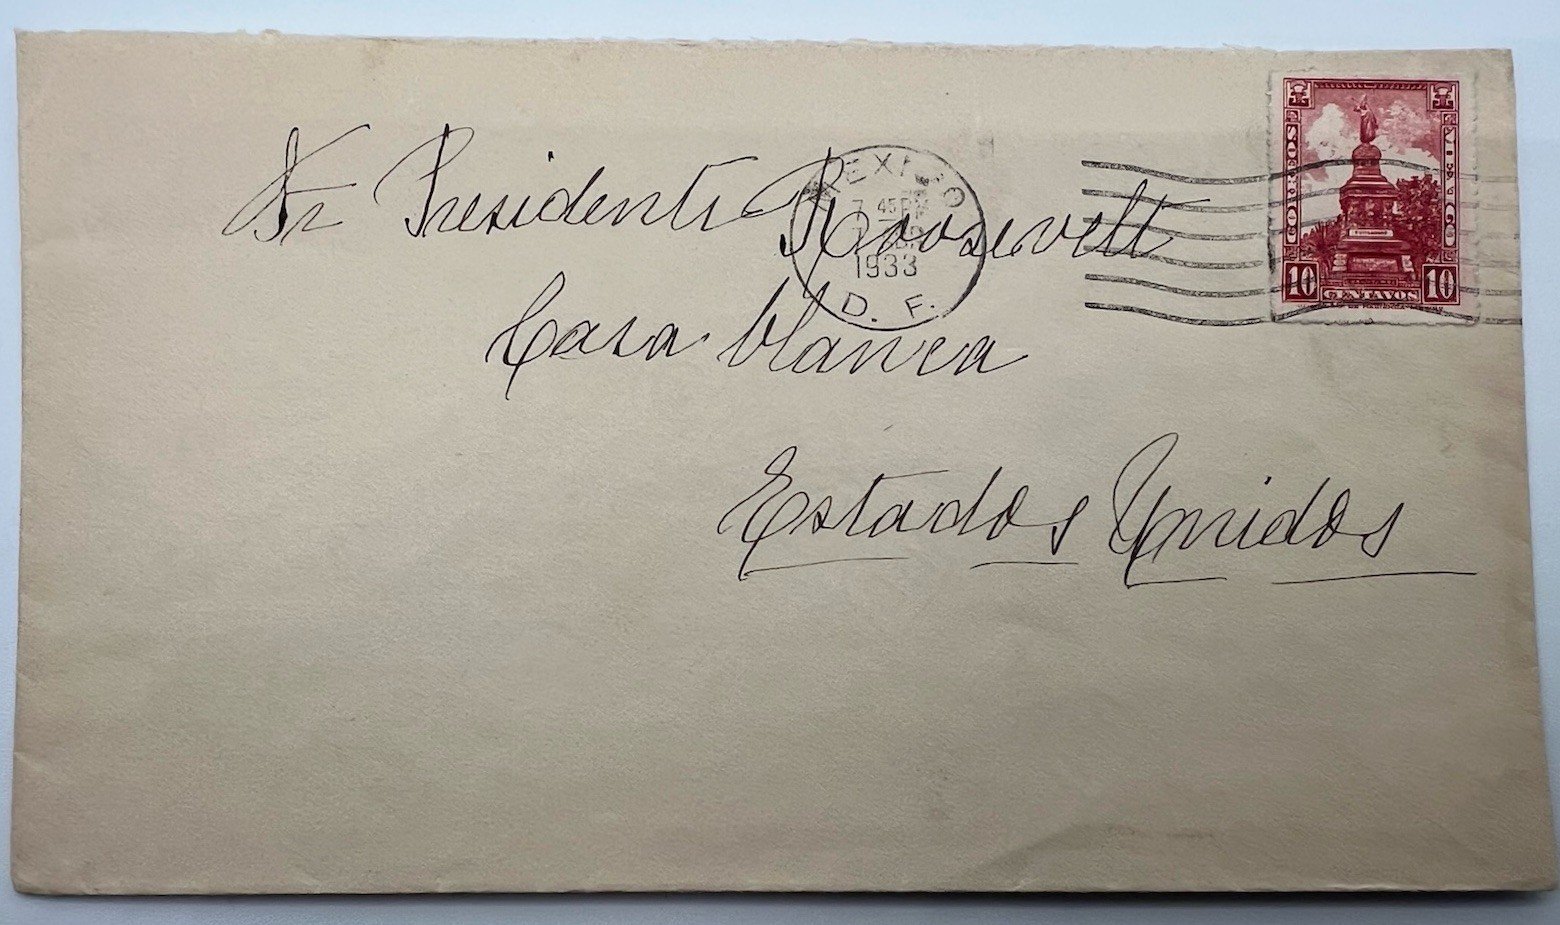 Sr Presidente Roosevelt
Casa blanca
Estados Unidos
MEXICO
7 45 PM
1933
D. F.
CORREOS
MEXICO
10 CENTAVOS 10